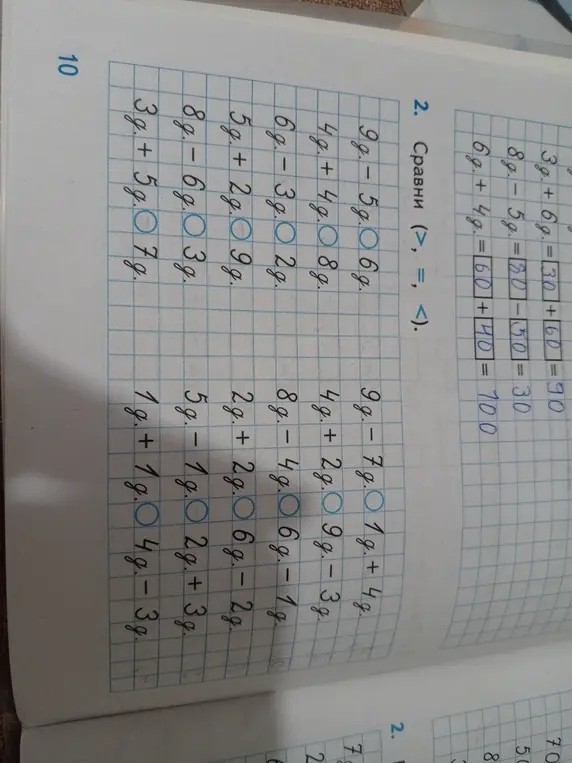 3д. + 6д. = 30 + 60 = 90
8д. − 5д. = 80 − 50 = 30
6д. + 4д. = 60 + 40 = 100
2. Сравни (>, =, <).
9д. − 5д. ○ 6д. 9д. − 7д. ○ 1д. + 4д.
4д. + 4д. ○ 8д. 4д. + 2д. ○ 9д. − 3д.
6д. − 3д. ○ 2д. 8д. − 4д. ○ 6д. − 1д.
5д. + 2д. ○ 9д. 2д. + 2д. ○ 6д. − 2д.
8д. − 6д. ○ 3д. 5д. − 1д. ○ 2д. + 3д.
3д. + 5д. ○ 7д. 1д. + 1д. ○ 4д. − 3д.
10
70
2.